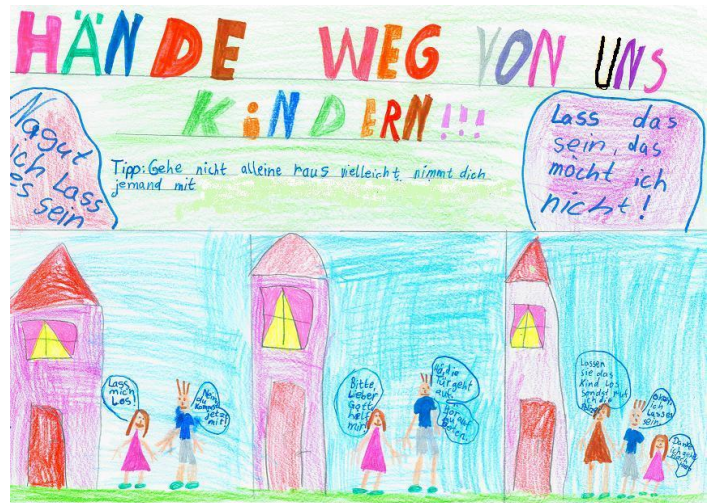 HÄNDE WEG VON UNS
KiNDERN!!!
Nagut
ich Lass
es sein
Tipp: Gehe nicht alleine raus vielleicht nimmt dich
jemand mit
Lass das
sein, das
möcht ich
nicht!
Lass
mich
Los!
Nein,
du
kommst
jetzt
mit!
Bitte,
Lieber
Gott
helf
mir!
die
Tür geht
auf.
Hör
zu
Beten.
Lassen
sie das
Kind Los
sonst ruf
ich die
Okay
ich
Lass es
sein.
Danke
ich gehe